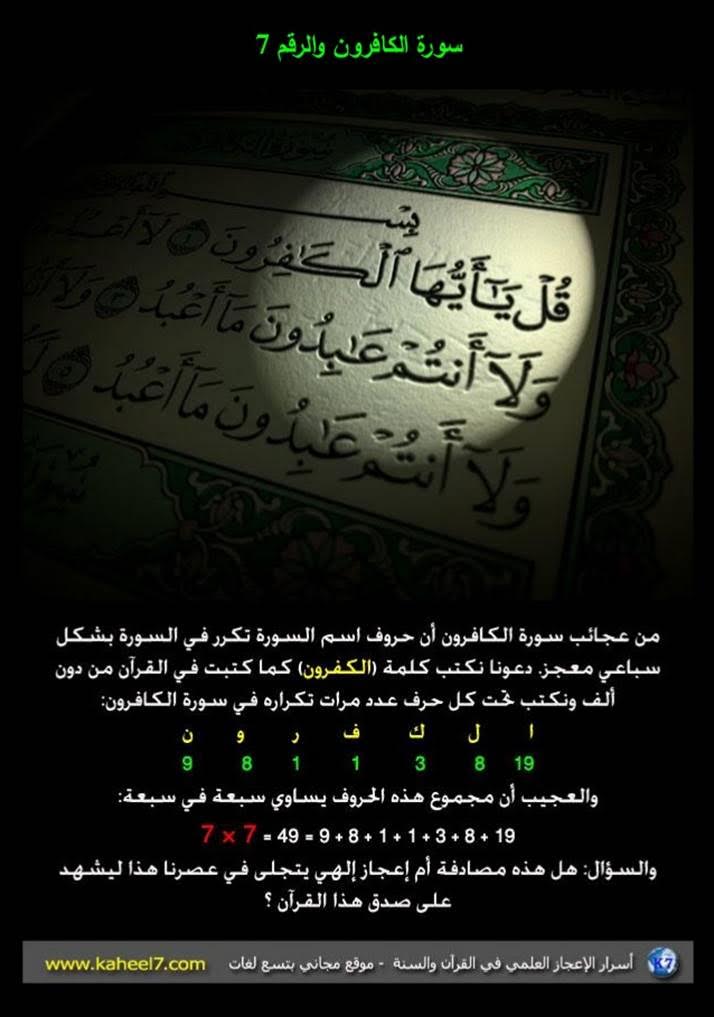 سورة الكافرون والرقم 7
بِسْ
قُلْ يَٰٓأَيُّهَا ٱلْكَٰفِرُونَ ١ لَآ أَعْبُدُ
وَلَآ أَنتُمْ عَٰبِدُونَ مَآ أَعْبُدُ ٣ وَلَآ
وَلَآ أَنتُمْ عَٰبِدُونَ مَآ أَعْبُدُ ٥
من عجائب سورة الكافرون أن حروف اسم السورة تكرر في السورة بشكل
سباعي معجز. دعونا نكتب كلمة (الكفرون) كما كتبت في القرآن من دون
ألف ونكتب تحت كل حرف عدد مرات تكراره في سورة الكافرون:
ا ل ك ف ر و ن
19 8 3 1 1 8 9
والعجيب أن مجموع هذه الحروف يساوي سبعة في سبعة:
7 × 7 = 49 = 9 + 8 + 1 + 1 + 3 + 8 + 19
والسؤال: هل هذه مصادفة أم إعجاز إلهي يتجلى في عصرنا هذا ليشهد
على صدق هذا القرآن ؟
K7 أسرار الإعجاز العلمي في القرآن والسنة - موقع مجاني بتسع لغات www.kaheel7.com